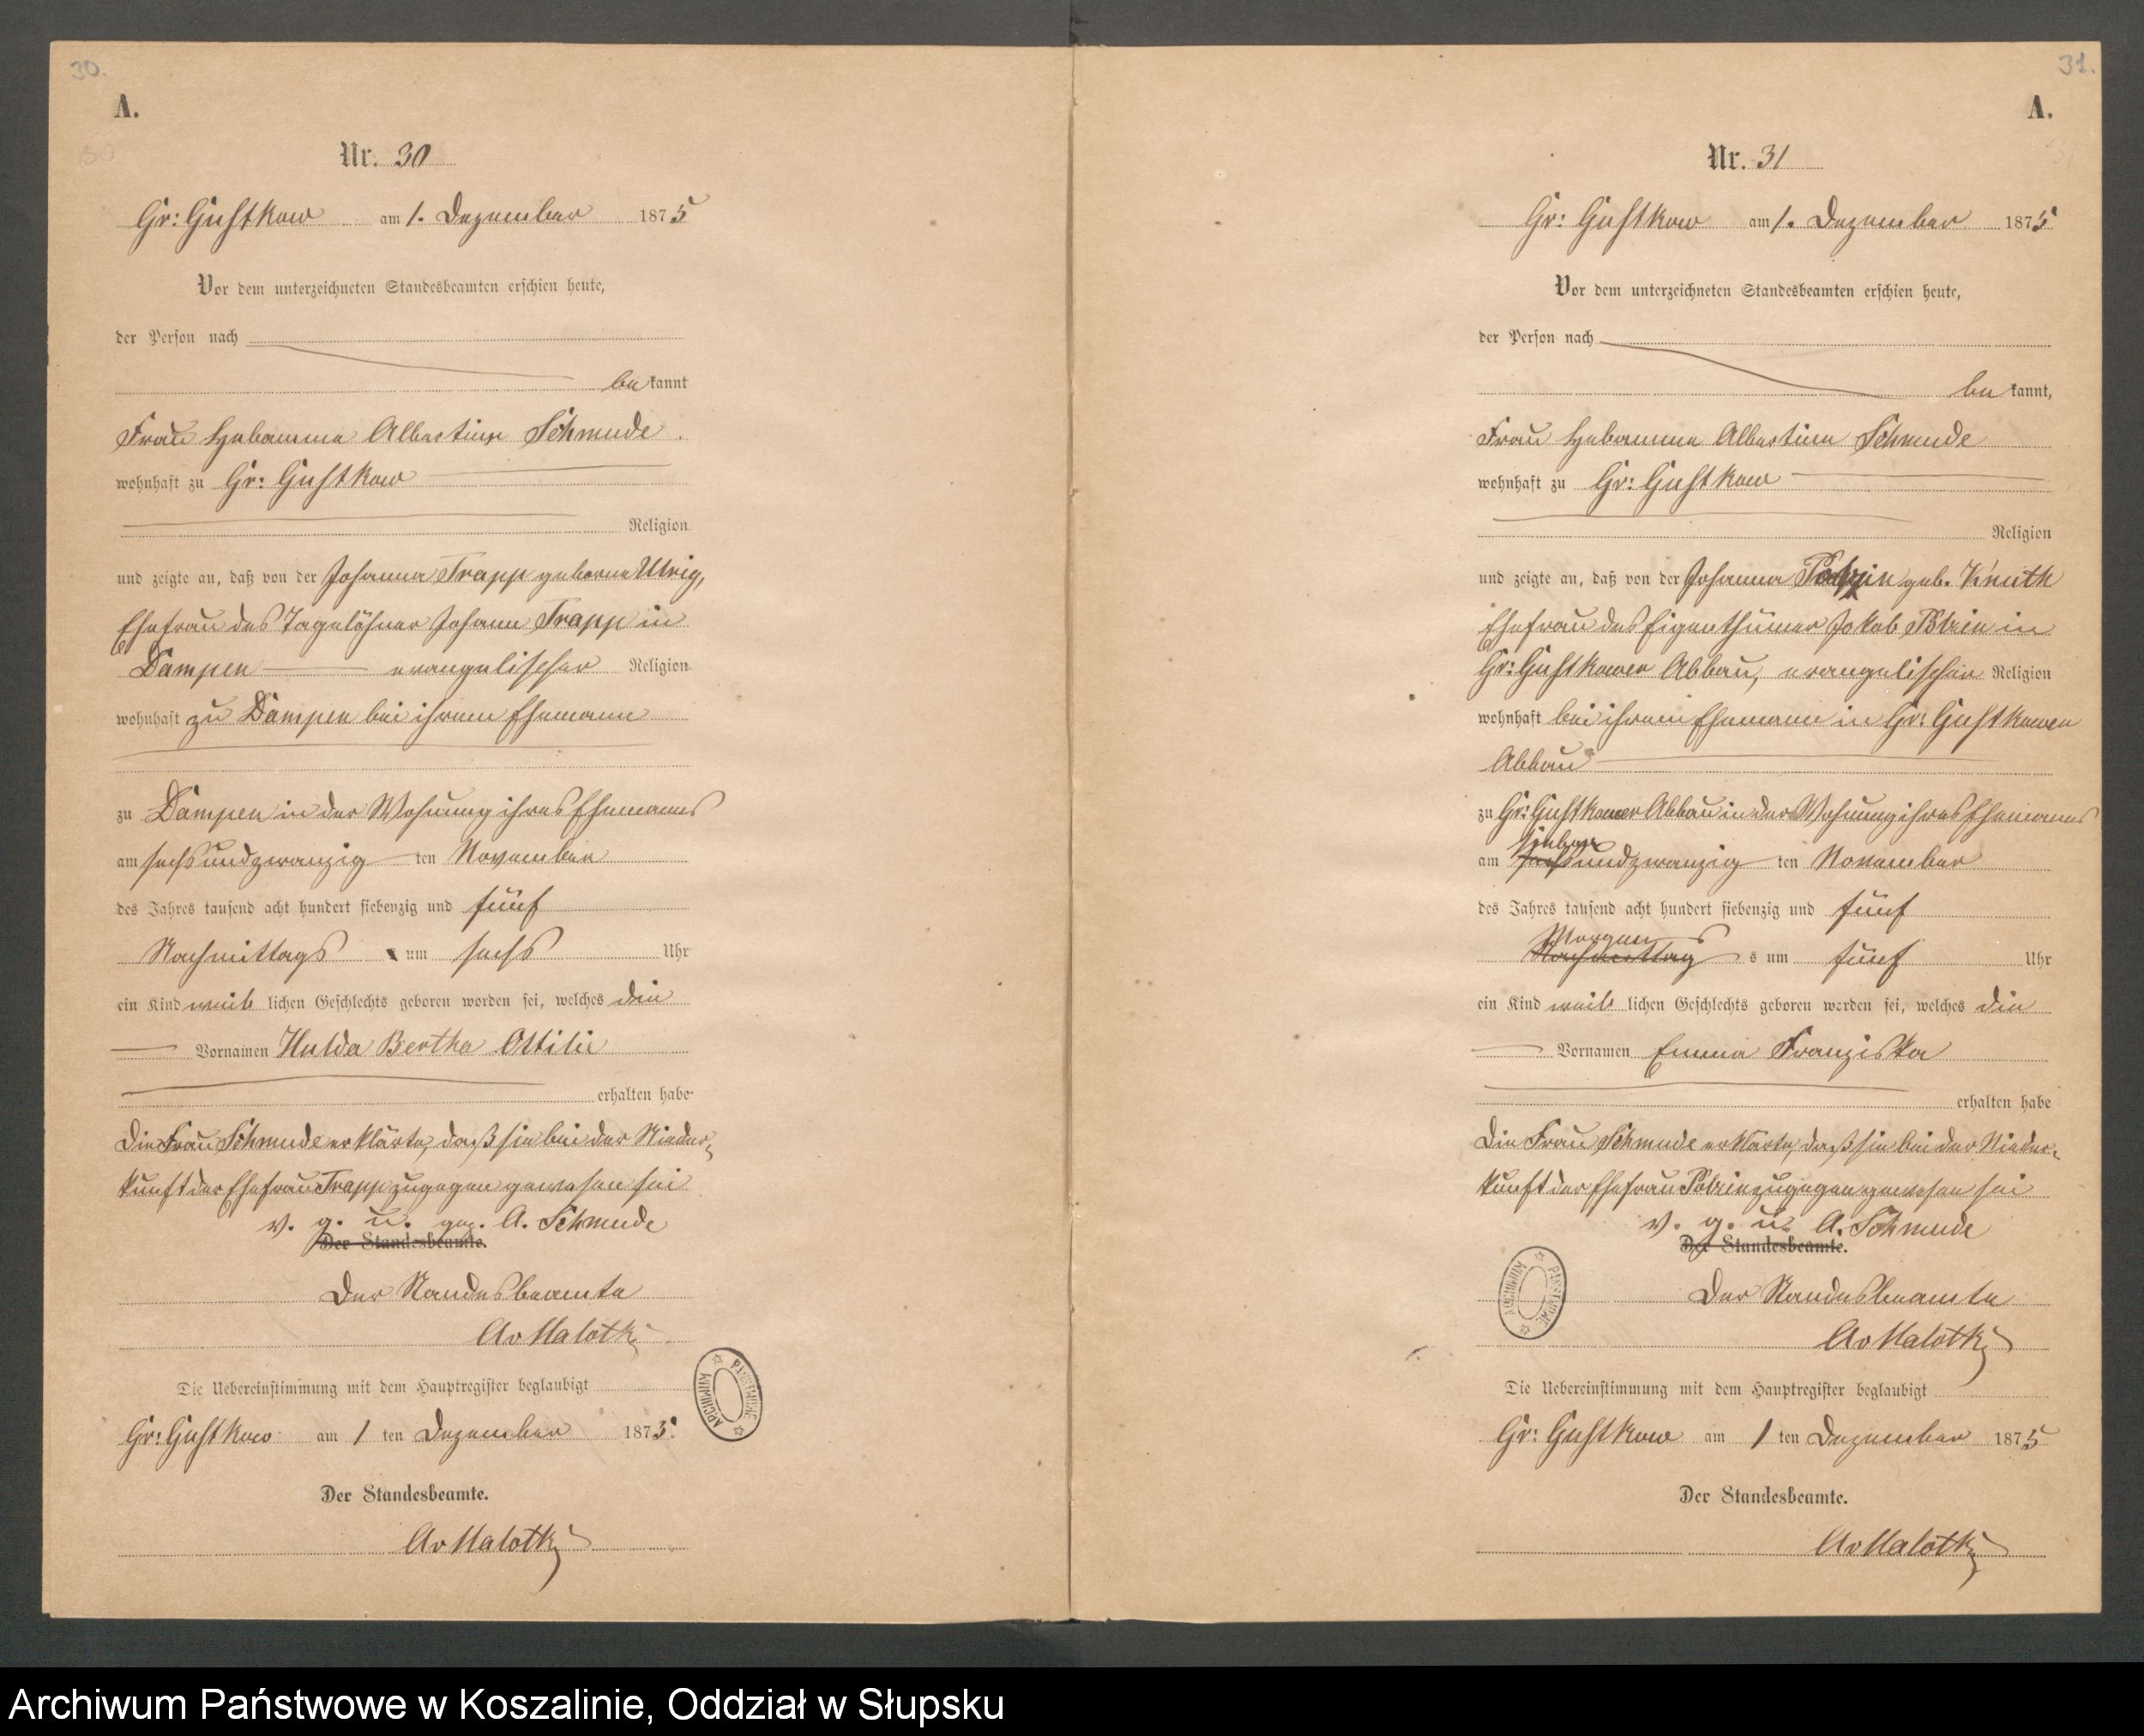 30.
A.
Nr. 30
Gr: Gustkow am 1. Dezember 1875
Vor dem unterzeichneten Standesbeamten erschien heute,
der Person nach
be kannt
Frau Hebamme Albertine Schmude.
wohnhaft zu Gr: Gustkow
Religion
und zeigte an, daß von der Johanna Trapp geborne Utrig,
Ehefrau des Tagelöhner Johann Trapp in
Dampen evangelischer Religion
wohnhaft zu Dampen bei ihrem Ehemann
zu Dampen in der Wohnung ihres Ehemanns
am sechsundzwanzig ten November
des Jahres tausend acht hundert siebenzig und fünf
Nachmittags um sechs Uhr
ein Kind weib lichen Geschlechts geboren worden sei, welches die
Vornamen Hulda Bertha Ottilie
erhalten habe
Die Frau Schmude erklärte, daß sie bei der Nieder-
kunft der Ehefrau Trapp zugegen gewesen sei
v. g. u. gez. A. Schmude
Der Standesbeamte.
Der Standesbeamte
Av Malotki
Die Uebereinstimmung mit dem Hauptregister beglaubigt
Gr: Gustkow am 1 ten Dezember 1875.
Der Standesbeamte.
Av Malotki
ARCHIWUM PAŃSTWOWE
31.
A.
Nr. 31
Gr: Gustkow am 1. Dezember 1875.
Vor dem unterzeichneten Standesbeamten erschien heute,
der Person nach
be kannt,
Frau Hebamme Albertine Schmude
wohnhaft zu Gr: Gustkow
Religion
und zeigte an, daß von der Johanna geb. Knuth
Ehefrau des Eigenthümer Jakob Pötzin in
Gr: Gustkower Abbau, evangelischer Religion
wohnhaft bei ihrem Ehemann in Gr: Gustkower
Abbau
zu Gr: Gustkower Abbau in der Wohnung ihres Ehemanns
sieben
am sechsundzwanzig ten November
des Jahres tausend acht hundert siebenzig und fünf
Morgens
Nachmittag s um fünf Uhr
ein Kind weib lichen Geschlechts geboren worden sei, welches die
Vornamen Emma Franziska
erhalten habe
Die Frau Schmude erklärte, daß sie bei der Nieder-
kunft der Ehefrau Pötzin zugegen gewesen sei
v. g. u. A. Schmude
Der Standesbeamte.
Der Standesbeamte
Av Malotki
ARCHIWUM PAŃSTWOWE
Die Uebereinstimmung mit dem Hauptregister beglaubigt
Gr: Gustkow am 1 ten Dezember 1875
Der Standesbeamte.
Av Malotki
Archiwum Państwowe w Koszalinie, Oddział w Słupsku